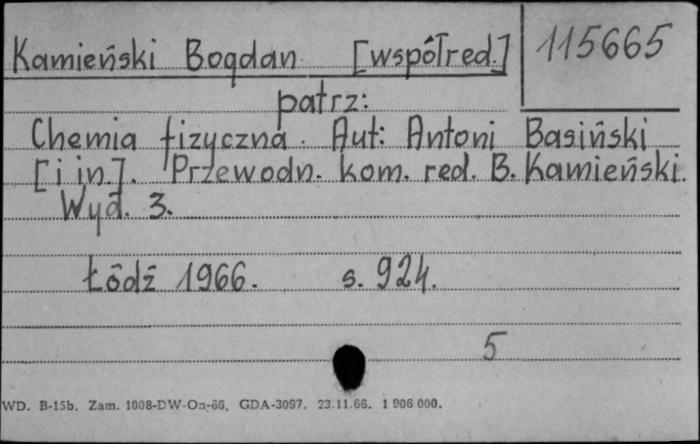 Kamieński Bogdan [współred.] 115665
patrz:
Chemia fizyczna. Aut: Antoni Basiński
[i in.]. Przewodn. kom. red. B. Kamieński.
Wyd. 3.
Łódź 1966. s. 924.
5
WD. B-15b. Zam. 1008-DW-On-66. GDA-3097. 23.11.66. 1 906 000.